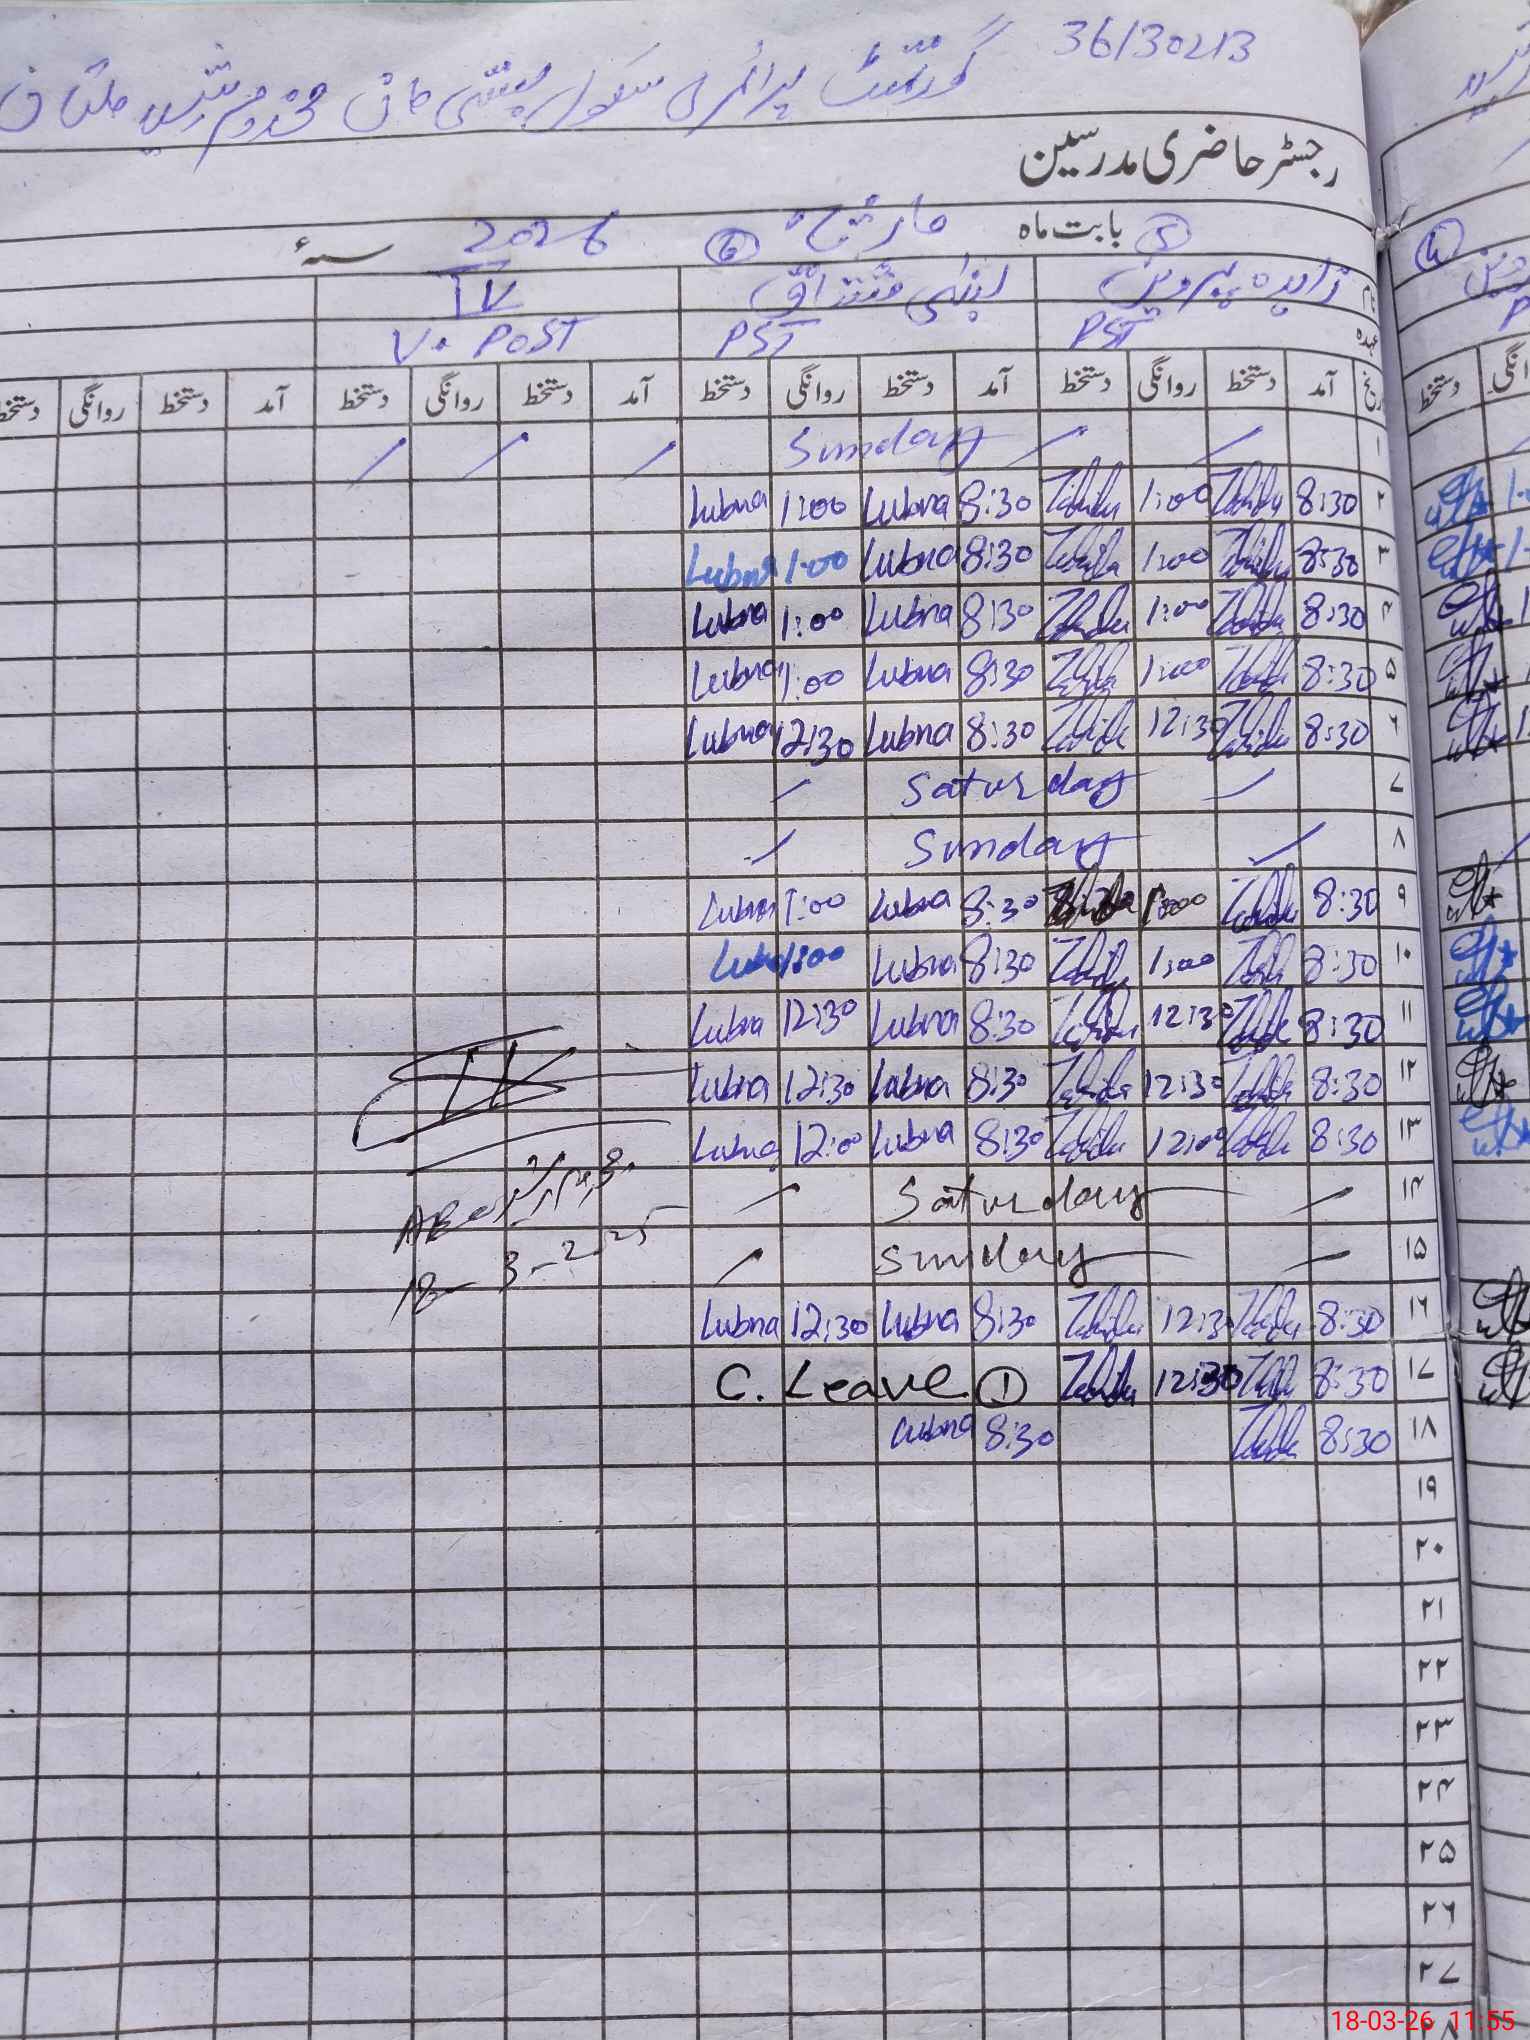 36130213
گورنمنٹ پرائمری سکول بستی خان مخدوم رشید ملتان
رجسٹر حاضری مدرسین
بابت ماہ مارچ 2026 سنہ
⑤ زاہدہ پروین ⑥ لبنیٰ مشتاق IV
عہدہ PST PST V. POST
تاریخ آمد دستخط روانگی دستخط آمد دستخط روانگی دستخط آمد دستخط روانگی دستخط آمد دستخط روانگی دستخط
۱ Sunday
۲ 8:30 Zahida 1:00 Zahida 8:30 Lubna 1:00 Lubna
۳ 8:30 Zahida 1:00 Zahida 8:30 Lubna 1:00 Lubna
۴ 8:30 Zahida 1:00 Zahida 8:30 Lubna 1:00 Lubna
۵ 8:30 Zahida 1:00 Zahida 8:30 Lubna 1:00 Lubna
۶ 8:30 Zahida 12:30 Zahida 8:30 Lubna 12:30 Lubna
۷ Saturday
۸ Sunday
۹ 8:30 Zahida 1:00 Zahida 8:30 Lubna 1:00 Lubna
۱۰ 8:30 Zahida 1:00 Zahida 8:30 Lubna 1:00 Lubna
۱۱ 8:30 Zahida 12:30 Zahida 8:30 Lubna 12:30 Lubna
۱۲ 8:30 Zahida 12:30 Zahida 8:30 Lubna 12:30 Lubna
۱۳ 8:30 Zahida 12:00 Zahida 8:30 Lubna 12:00 Lubna
۱۴ Saturday
۱۵ Sunday
۱۶ 8:30 Zahida 12:30 Zahida 8:30 Lubna 12:30 Lubna
۱۷ 8:30 Zahida 12:30 Zahida C. Leave ①
۱۸ 8:30 Zahida 8:30 Lubna
۱۹
۲۰
۲۱
۲۲
۲۳
۲۴
۲۵
۲۶
۲۷
18-03-26 11:55